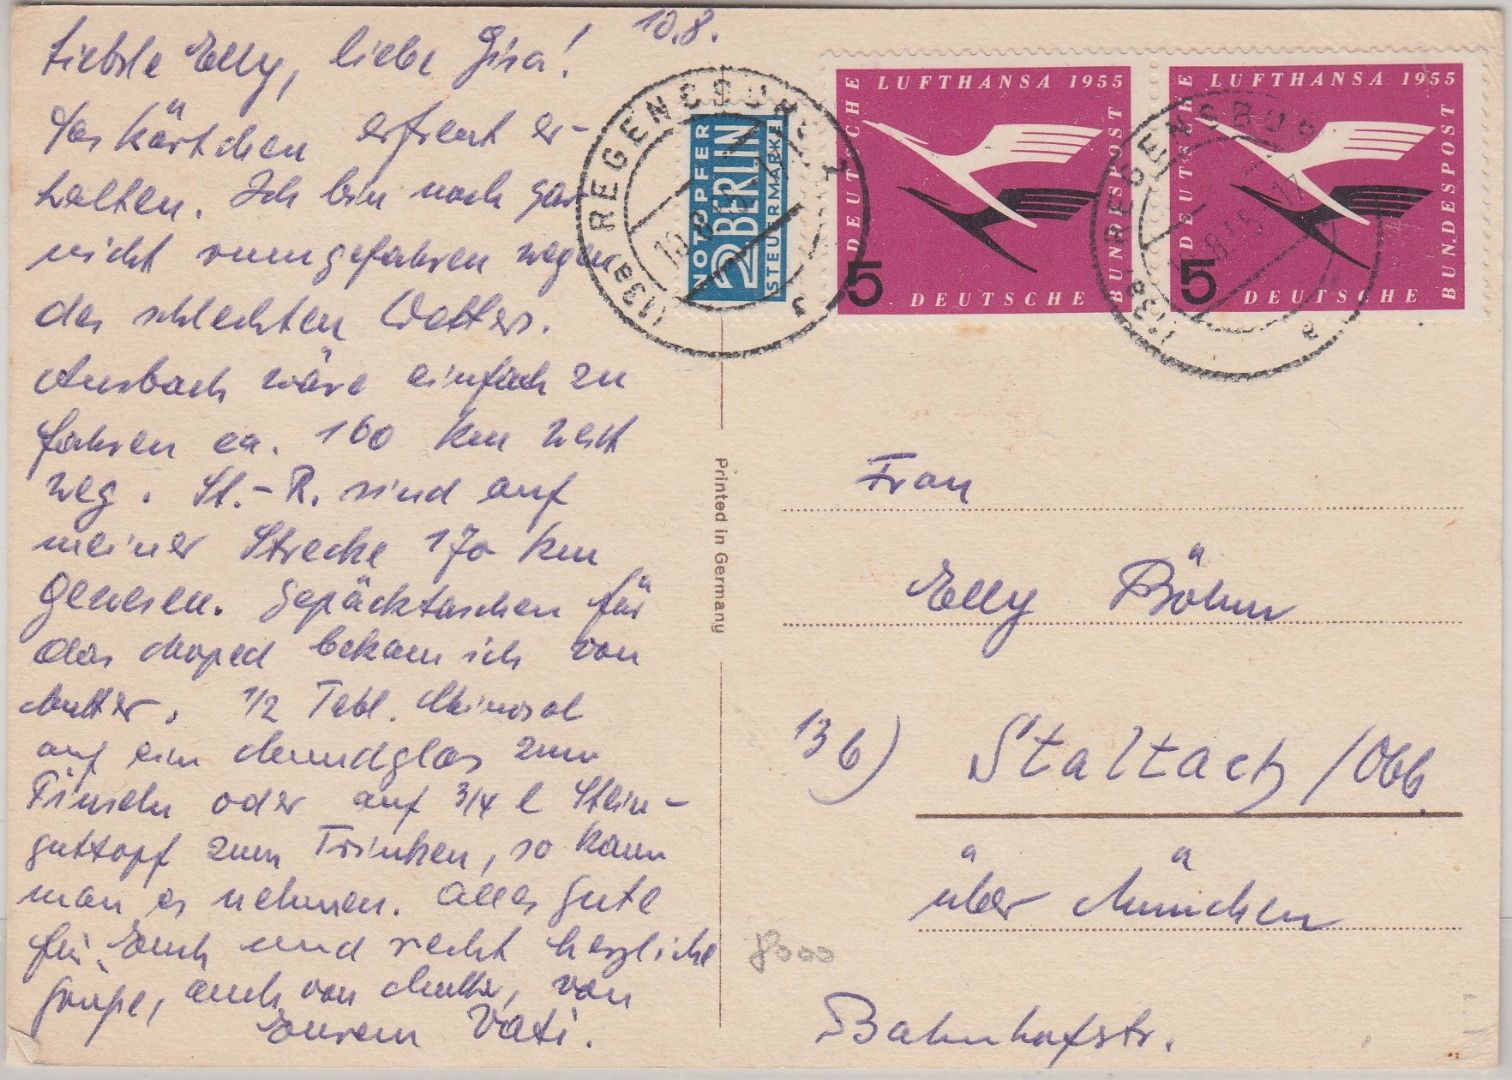 10.8.
Liebste Elly, liebe Gisa!
Das Kärtchen erfreut er-
halten. Ich bin noch gar
nicht rumgefahren wegen
des schlechten Wetters.
Ansbach wäre einfach zu
fahren ca. 160 km weit
weg. St.-R. sind auf
meiner Strecke 170 km
gewesen. Gepäcktaschen für
das Moped bekam ich von
Mutter. 1/2 Tabl.
auf ein Mundglas zum
Pinseln oder auf 3/4 l Stein-
guttopf zum Trinken, so kann
man es nehmen. Alles Gute
für Euch und recht herzliche
Grüße, auch von Mutter, von
Eurem Vati.
(13a) REGENSBURG 2
NOTOPFER
2 BERLIN
STEUERMARKE
LUFTHANSA 1955
DEUTSCHE
BUNDESPOST
5 DEUTSCHE
LUFTHANSA 1955
DEUTSCHE
BUNDESPOST
5 DEUTSCHE
(13a) REGENSBURG
a
Printed in Germany
Frau
Elly Böhm
13b) Staltach/Obb.
über München
8000
Bahnhofstr.